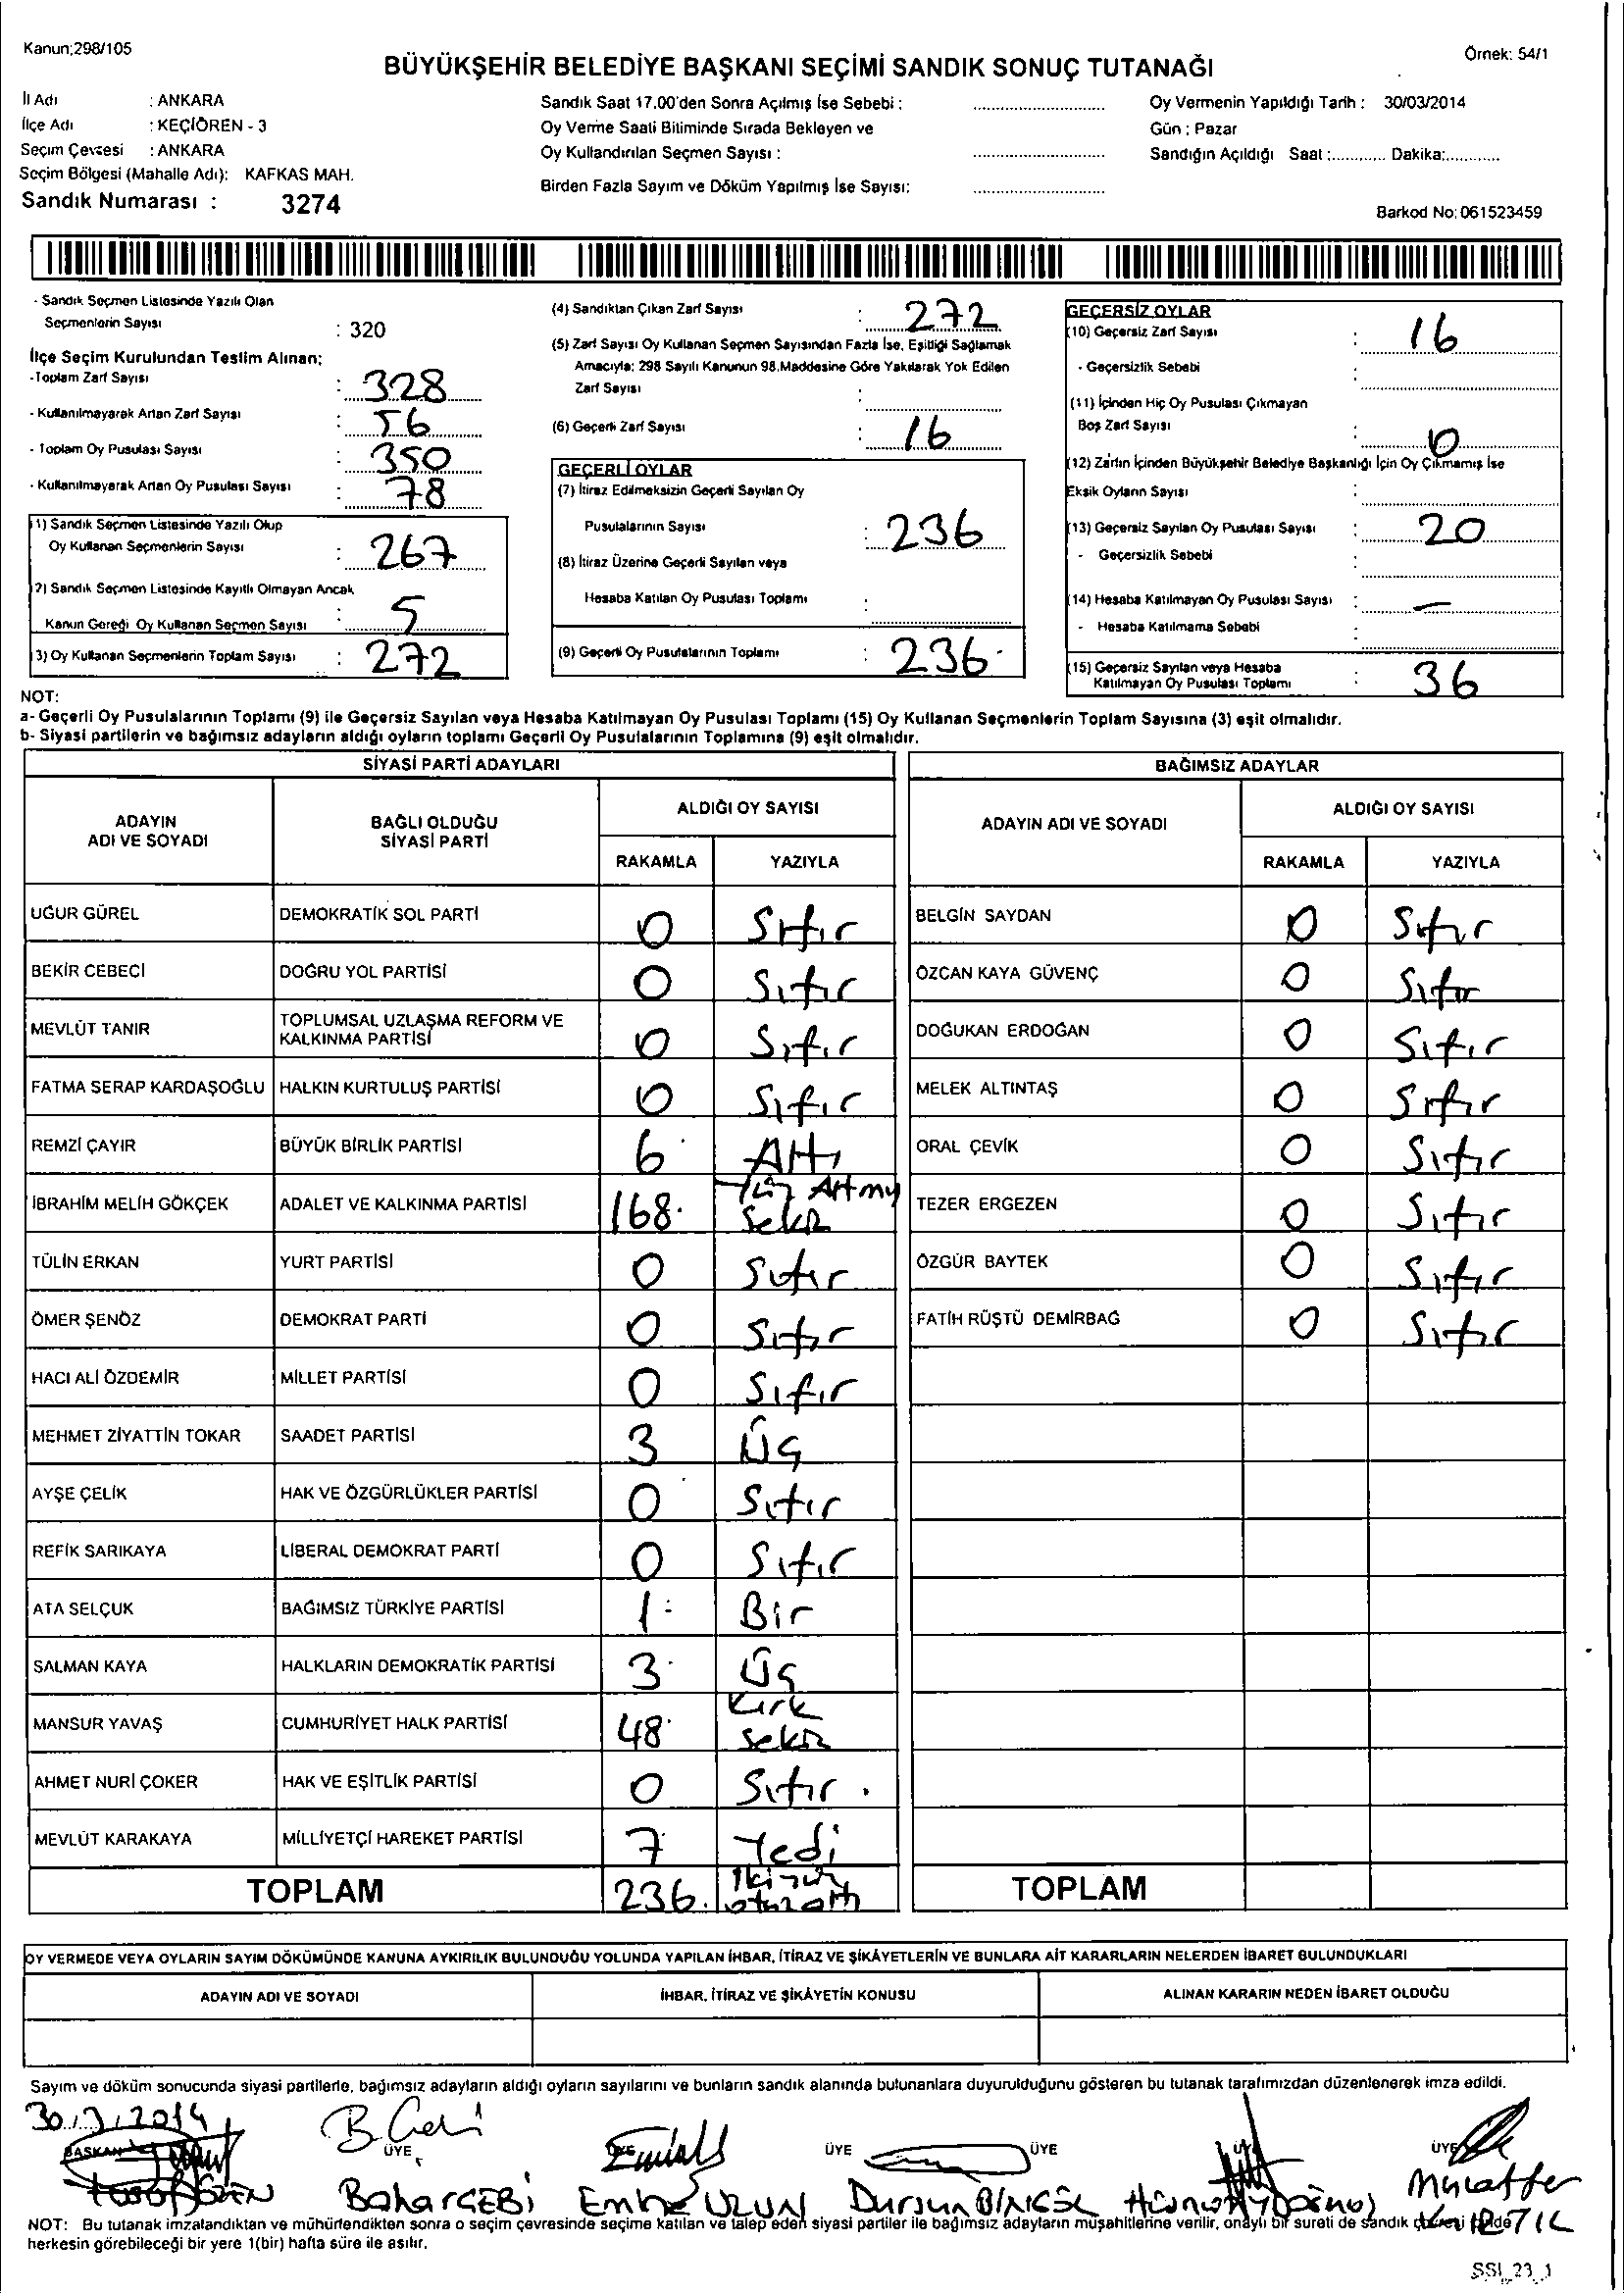 Kanun;298/105
Örnek: 54/1
BÜYÜKŞEHİR BELEDİYE BAŞKANI SEÇİMİ SANDIK SONUÇ TUTANAĞI
İl Adı : ANKARA
İlçe Adı : KEÇİÖREN - 3
Seçim Çevresi : ANKARA
Seçim Bölgesi (Mahalle Adı): KAFKAS MAH.
Sandık Numarası : 3274
Sandık Saat 17.00'den Sonra Açılmış İse Sebebi :
Oy Verme Saati Bitiminde Sırada Bekleyen ve
Oy Kullandırılan Seçmen Sayısı :
Birden Fazla Sayım ve Döküm Yapılmış İse Sayısı:
Oy Vermenin Yapıldığı Tarih : 30/03/2014
Gün : Pazar
Sandığın Açıldığı Saat :............ Dakika:............
Barkod No: 061523459
- Sandık Seçmen Listesinde Yazılı Olan
Seçmenlerin Sayısı : 320
İlçe Seçim Kurulundan Teslim Alınan:
-Toplam Zarf Sayısı : 328
- Kullanılmayarak Artan Zarf Sayısı : 56
- Toplam Oy Pusulası Sayısı : 350
- Kullanılmayarak Artan Oy Pusulası Sayısı : 78
1) Sandık Seçmen Listesinde Yazılı Olup
Oy Kullanan Seçmenlerin Sayısı : 267
2) Sandık Seçmen Listesinde Kayıtlı Olmayan Ancak
Kanun Gereği Oy Kullanan Seçmen Sayısı : 5
3) Oy Kullanan Seçmenlerin Toplam Sayısı : 272
(4) Sandıktan Çıkan Zarf Sayısı : 272
(5) Zarf Sayısı Oy Kullanan Seçmen Sayısından Fazla İse, Eşitliği Sağlamak
Amacıyla; 298 Sayılı Kanunun 98.Maddesine Göre Yakılarak Yok Edilen
Zarf Sayısı :
(6) Geçerli Zarf Sayısı : 16
GEÇERLİ OYLAR
(7) İtiraz Edilmeksizin Geçerli Sayılan Oy
Pusulalarının Sayısı : 236
(8) İtiraz Üzerine Geçerli Sayılan veya
Hesaba Katılan Oy Pusulası Toplamı :
(9) Geçerli Oy Pusulalarının Toplamı : 236
GEÇERSİZ OYLAR
(10) Geçersiz Zarf Sayısı : 16
- Geçersizlik Sebebi :
(11) İçinden Hiç Oy Pusulası Çıkmayan
Boş Zarf Sayısı : 0
(12) Zarfın İçinden Büyükşehir Belediye Başkanlığı İçin Oy Çıkmamış İse
Eksik Oyların Sayısı :
(13) Geçersiz Sayılan Oy Pusulası Sayısı : 20
- Geçersizlik Sebebi :
(14) Hesaba Katılmayan Oy Pusulası Sayısı : —
- Hesaba Katılmama Sebebi :
(15) Geçersiz Sayılan veya Hesaba
Katılmayan Oy Pusulası Toplamı : 36
NOT:
a- Geçerli Oy Pusulalarının Toplamı (9) ile Geçersiz Sayılan veya Hesaba Katılmayan Oy Pusulası Toplamı (15) Oy Kullanan Seçmenlerin Toplam Sayısına (3) eşit olmalıdır.
b- Siyasi partilerin ve bağımsız adayların aldığı oyların toplamı Geçerli Oy Pusulalarının Toplamına (9) eşit olmalıdır.
SİYASİ PARTİ ADAYLARI
ADAYIN ADI VE SOYADI BAĞLI OLDUĞU SİYASİ PARTİ ALDIĞI OY SAYISI
RAKAMLA YAZIYLA
UĞUR GÜREL DEMOKRATİK SOL PARTİ 0 Sıfır
BEKİR CEBECİ DOĞRU YOL PARTİSİ 0 Sıfır
MEVLÜT TANIR TOPLUMSAL UZLAŞMA REFORM VE KALKINMA PARTİSİ 0 Sıfır
FATMA SERAP KARDAŞOĞLU HALKIN KURTULUŞ PARTİSİ 0 Sıfır
REMZİ ÇAYIR BÜYÜK BİRLİK PARTİSİ 6 Altı
İBRAHİM MELİH GÖKÇEK ADALET VE KALKINMA PARTİSİ 168 Yüz Altmış Sekiz
TÜLİN ERKAN YURT PARTİSİ 0 Sıfır
ÖMER ŞENÖZ DEMOKRAT PARTİ 0 Sıfır
HACI ALİ ÖZDEMİR MİLLET PARTİSİ 0 Sıfır
MEHMET ZİYATTİN TOKAR SAADET PARTİSİ 3 Üç
AYŞE ÇELİK HAK VE ÖZGÜRLÜKLER PARTİSİ 0 Sıfır
REFİK SARIKAYA LİBERAL DEMOKRAT PARTİ 0 Sıfır
ATA SELÇUK BAĞIMSIZ TÜRKİYE PARTİSİ 1 Bir
SALMAN KAYA HALKLARIN DEMOKRATİK PARTİSİ 3 Üç
MANSUR YAVAŞ CUMHURİYET HALK PARTİSİ 48 Kırk Sekiz
AHMET NURİ ÇOKER HAK VE EŞİTLİK PARTİSİ 0 Sıfır
MEVLÜT KARAKAYA MİLLİYETÇİ HAREKET PARTİSİ 7 Yedi
TOPLAM 236 İkiyüz otuzaltı
BAĞIMSIZ ADAYLAR
ADAYIN ADI VE SOYADI ALDIĞI OY SAYISI
RAKAMLA YAZIYLA
BELGİN SAYDAN 0 Sıfır
ÖZCAN KAYA GÜVENÇ 0 Sıfır
DOĞUKAN ERDOĞAN 0 Sıfır
MELEK ALTINTAŞ 0 Sıfır
ORAL ÇEVİK 0 Sıfır
TEZER ERGEZEN 0 Sıfır
ÖZGÜR BAYTEK 0 Sıfır
FATİH RÜŞTÜ DEMİRBAĞ 0 Sıfır
TOPLAM
OY VERMEDE VEYA OYLARIN SAYIM DÖKÜMÜNDE KANUNA AYKIRILIK BULUNDUĞU YOLUNDA YAPILAN İHBAR, İTİRAZ VE ŞİKÂYETLERİN VE BUNLARA AİT KARARLARIN NELERDEN İBARET BULUNDUKLARI
ADAYIN ADI VE SOYADI İHBAR, İTİRAZ VE ŞİKÂYETİN KONUSU ALINAN KARARIN NEDEN İBARET OLDUĞU
Sayım ve döküm sonucunda siyasi partilerle, bağımsız adayların aldığı oyların sayılarını ve bunların sandık alanında bulunanlara duyurulduğunu gösteren bu tutanak tarafımızdan düzenlenerek imza edildi.
30.3.2014
BAŞKAN ÜYE ÜYE ÜYE ÜYE ÜYE
Bahar GEBİ Emine UZUN Dursun BİNGÖL
NOT: Bu tutanak imzalandıktan ve mühürlendikten sonra o seçim çevresinde seçime katılan ve talep eden siyasi partiler ile bağımsız adayların müşahitlerine verilir, onaylı bir sureti de sandık
herkesin görebileceği bir yere 1(bir) hafta süre ile asılır.
SSI_23_1